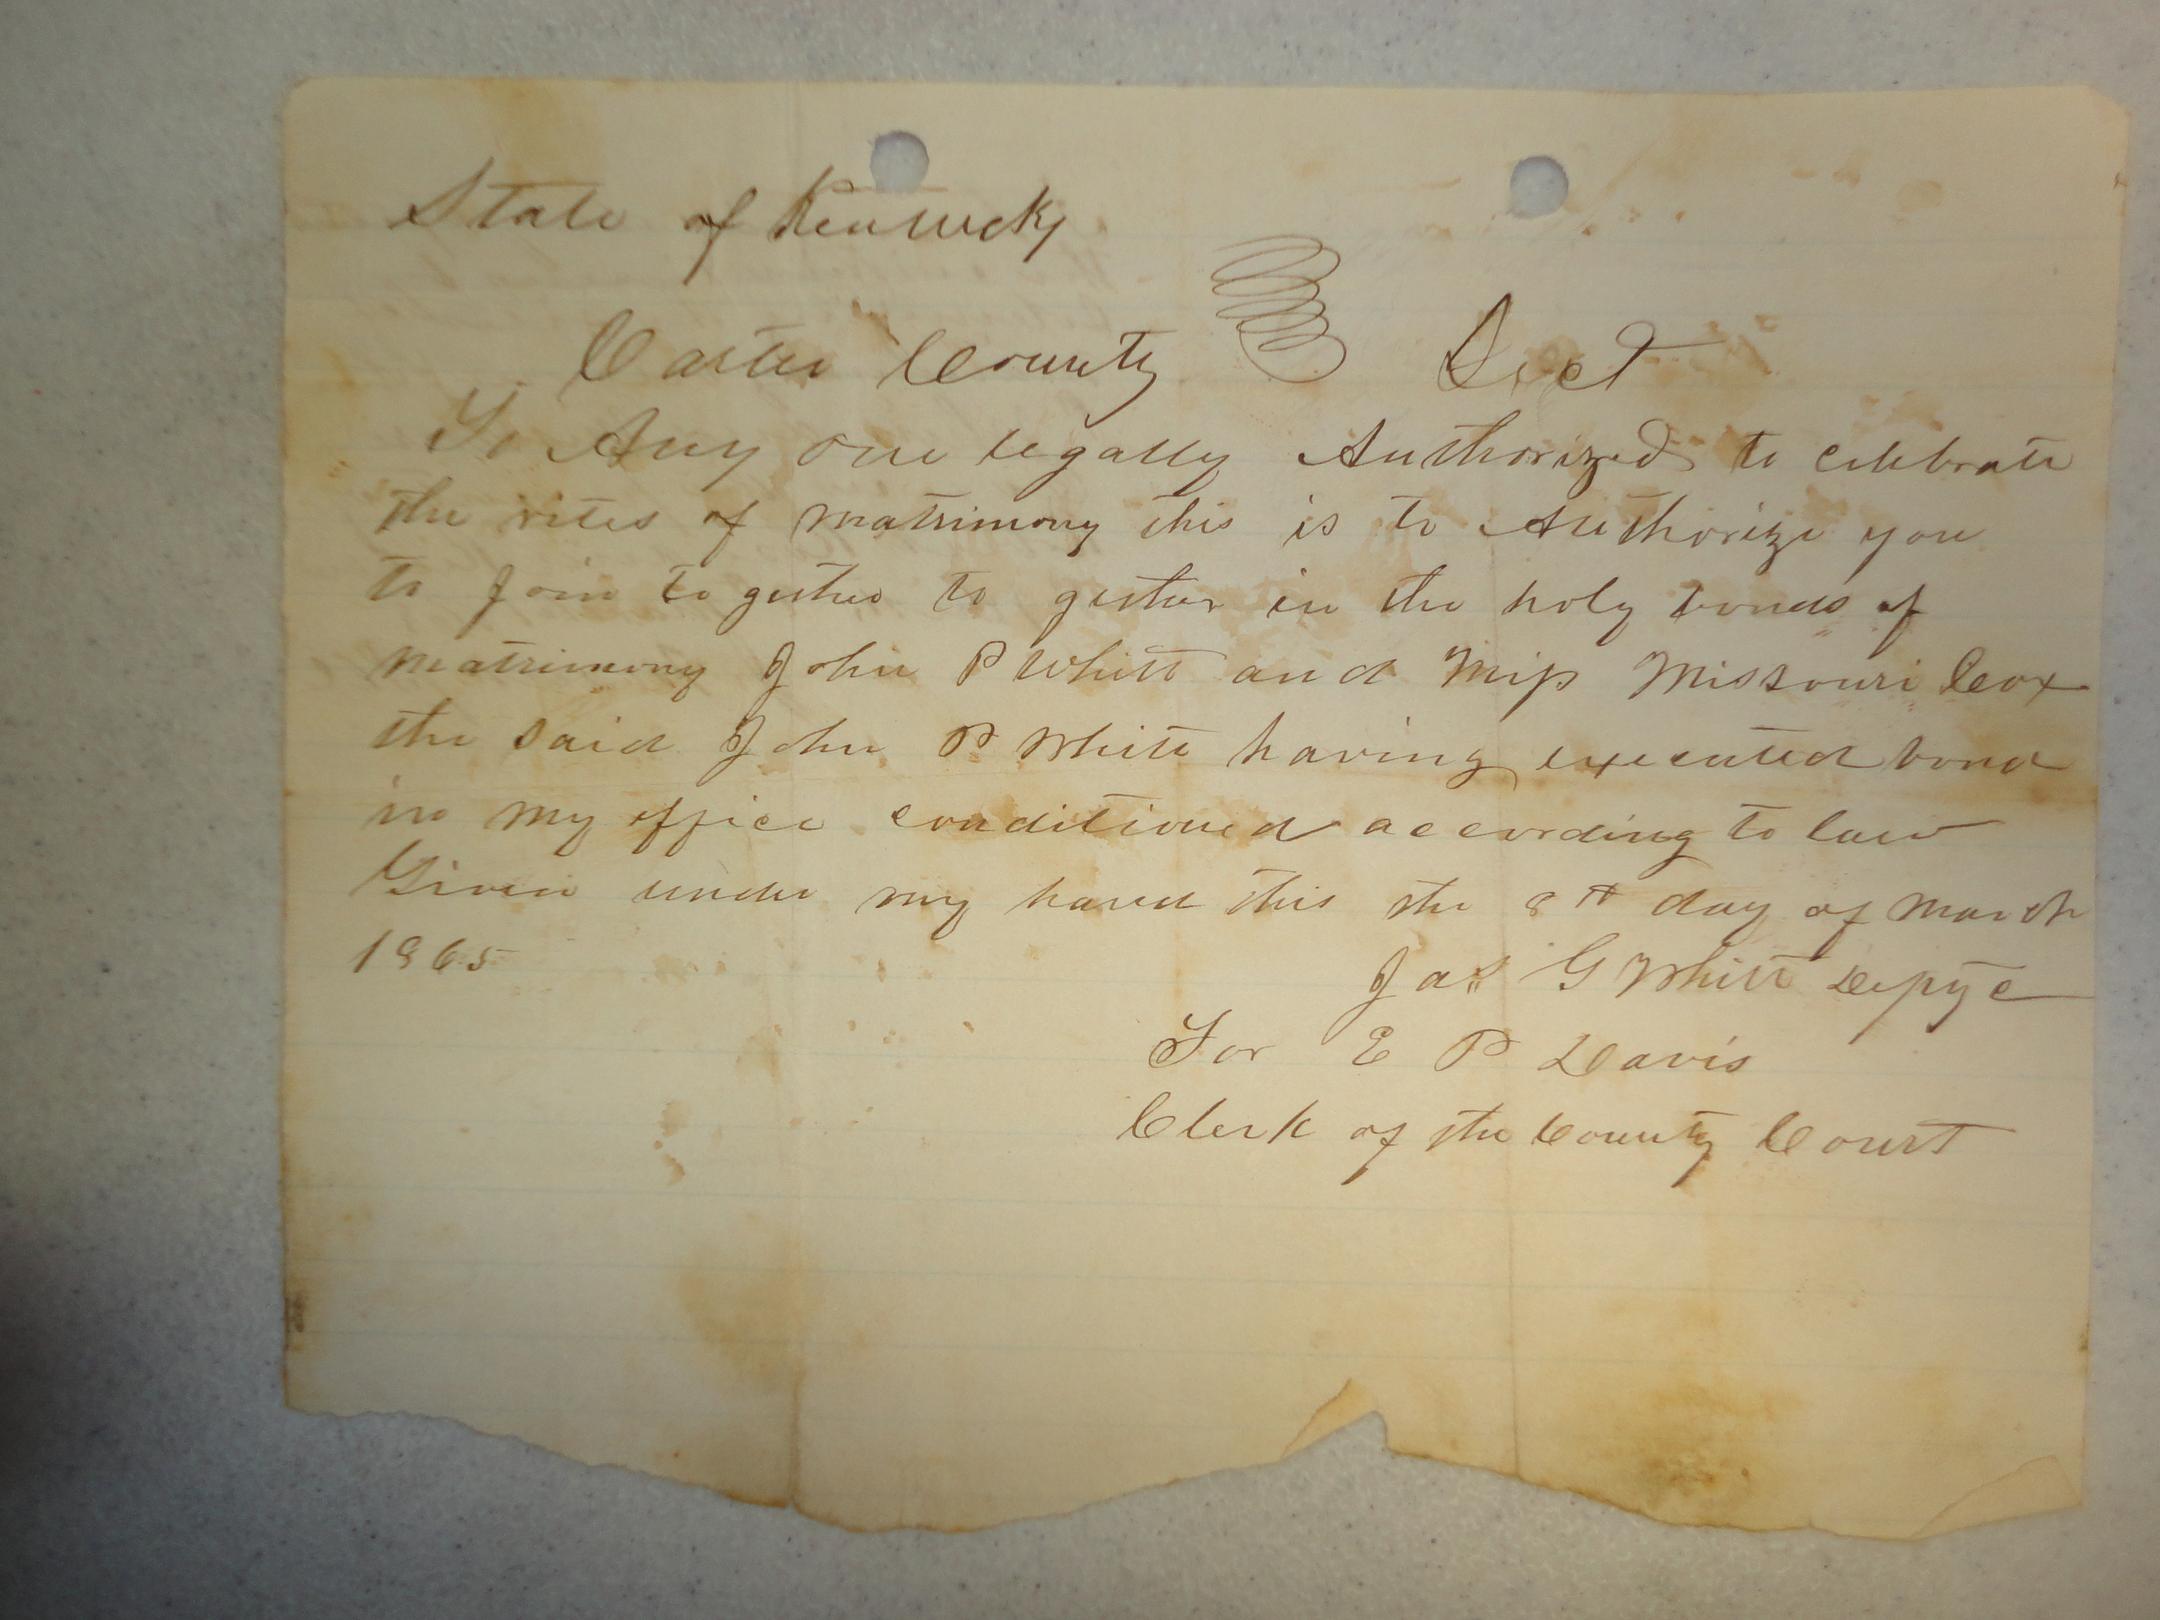 State of Kentucky
Carter County Sect
To Any one legally Authorized to celebrate
the rites of matrimony this is to Authorize you
to Join to gether to gether in the holy bonds of
matrimony John P Whitt and Miss Missouri Cox
the said John P White having executed bond
in my office conditioned according to law
Given under my hand this the 8th day of March
1865
Jas G Whitt Depty C
For E P Davis
Clerk of the County Court